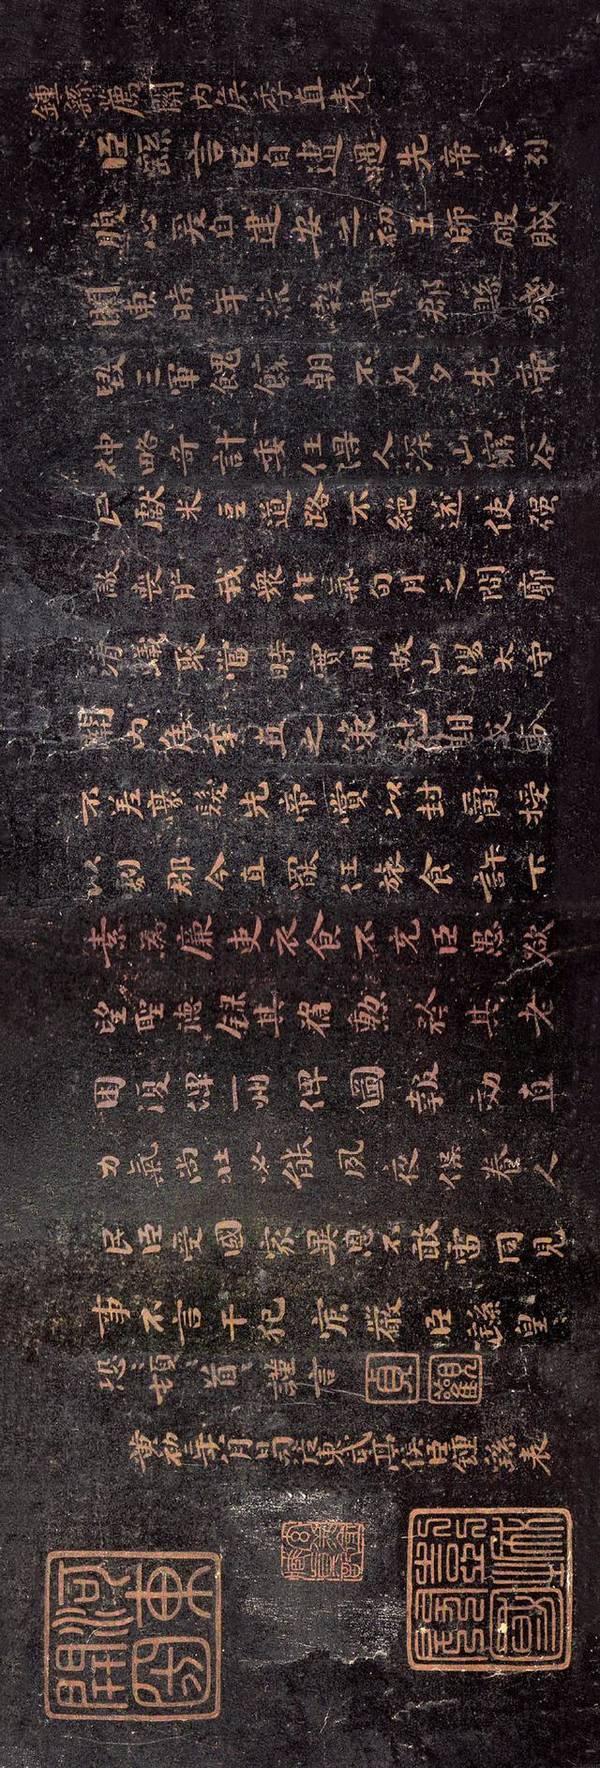 鍾繇薦關內侯季直表
臣繇言臣自遭遇先帝列
腹心爰自建安之初王師破賊
關東時年荒穀貴郡縣殘
毀三軍餽饟朝不及夕先帝
神略奇計委任得人深山窮谷
民獻米豆道路不絕遂使強
敵喪膽我眾作氣旬月之間廓
清蟻聚當時實用故山陽太守
關內侯季直之策剋期成事
不差豪髮先帝賞以封爵授
以劇郡今直罷任旅食許下
素為廉吏衣食不充臣愚欲
望聖德錄其舊勳矜其老
困復俾一州俾圖報效直
力氣尚壯必能夙夜保養人
民臣受國家異恩不敢雷同見
事不言干犯宸嚴臣繇皇
恐頓首謹言
貞觀
黃初二年八月日司徒東武亭侯臣鍾繇表